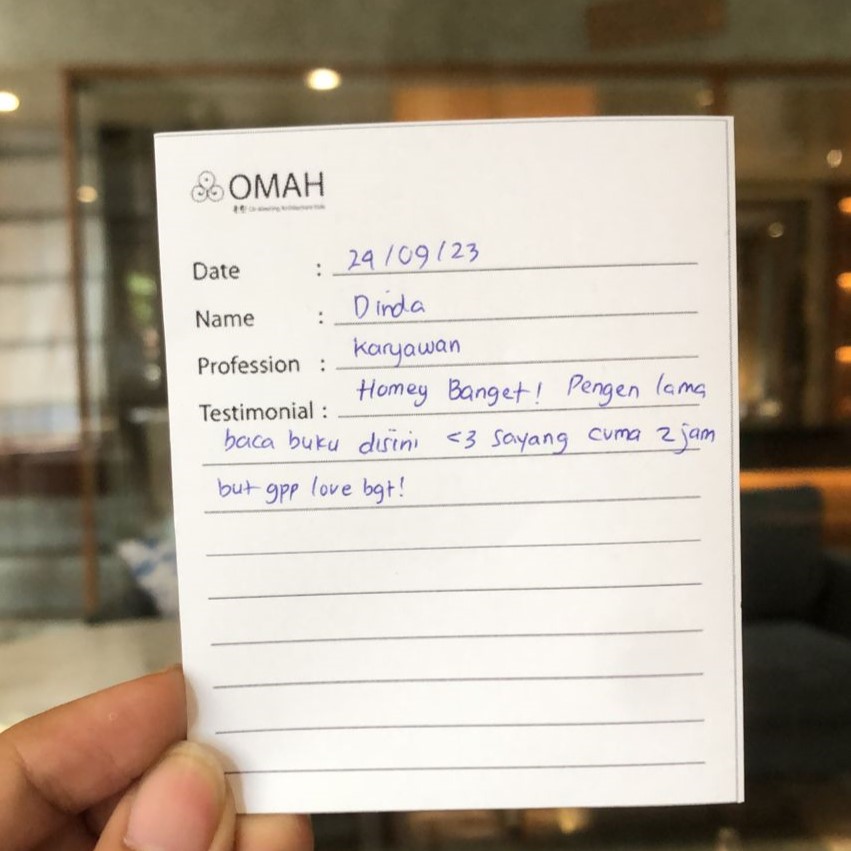 OMAH
Date : 29/09/23
Name : Dinda
Profession : Karyawan
Testimonial : Homey Banget! Pengen lama
baca buku disini <3 sayang cuma 2 jam
but gpp love bgt!